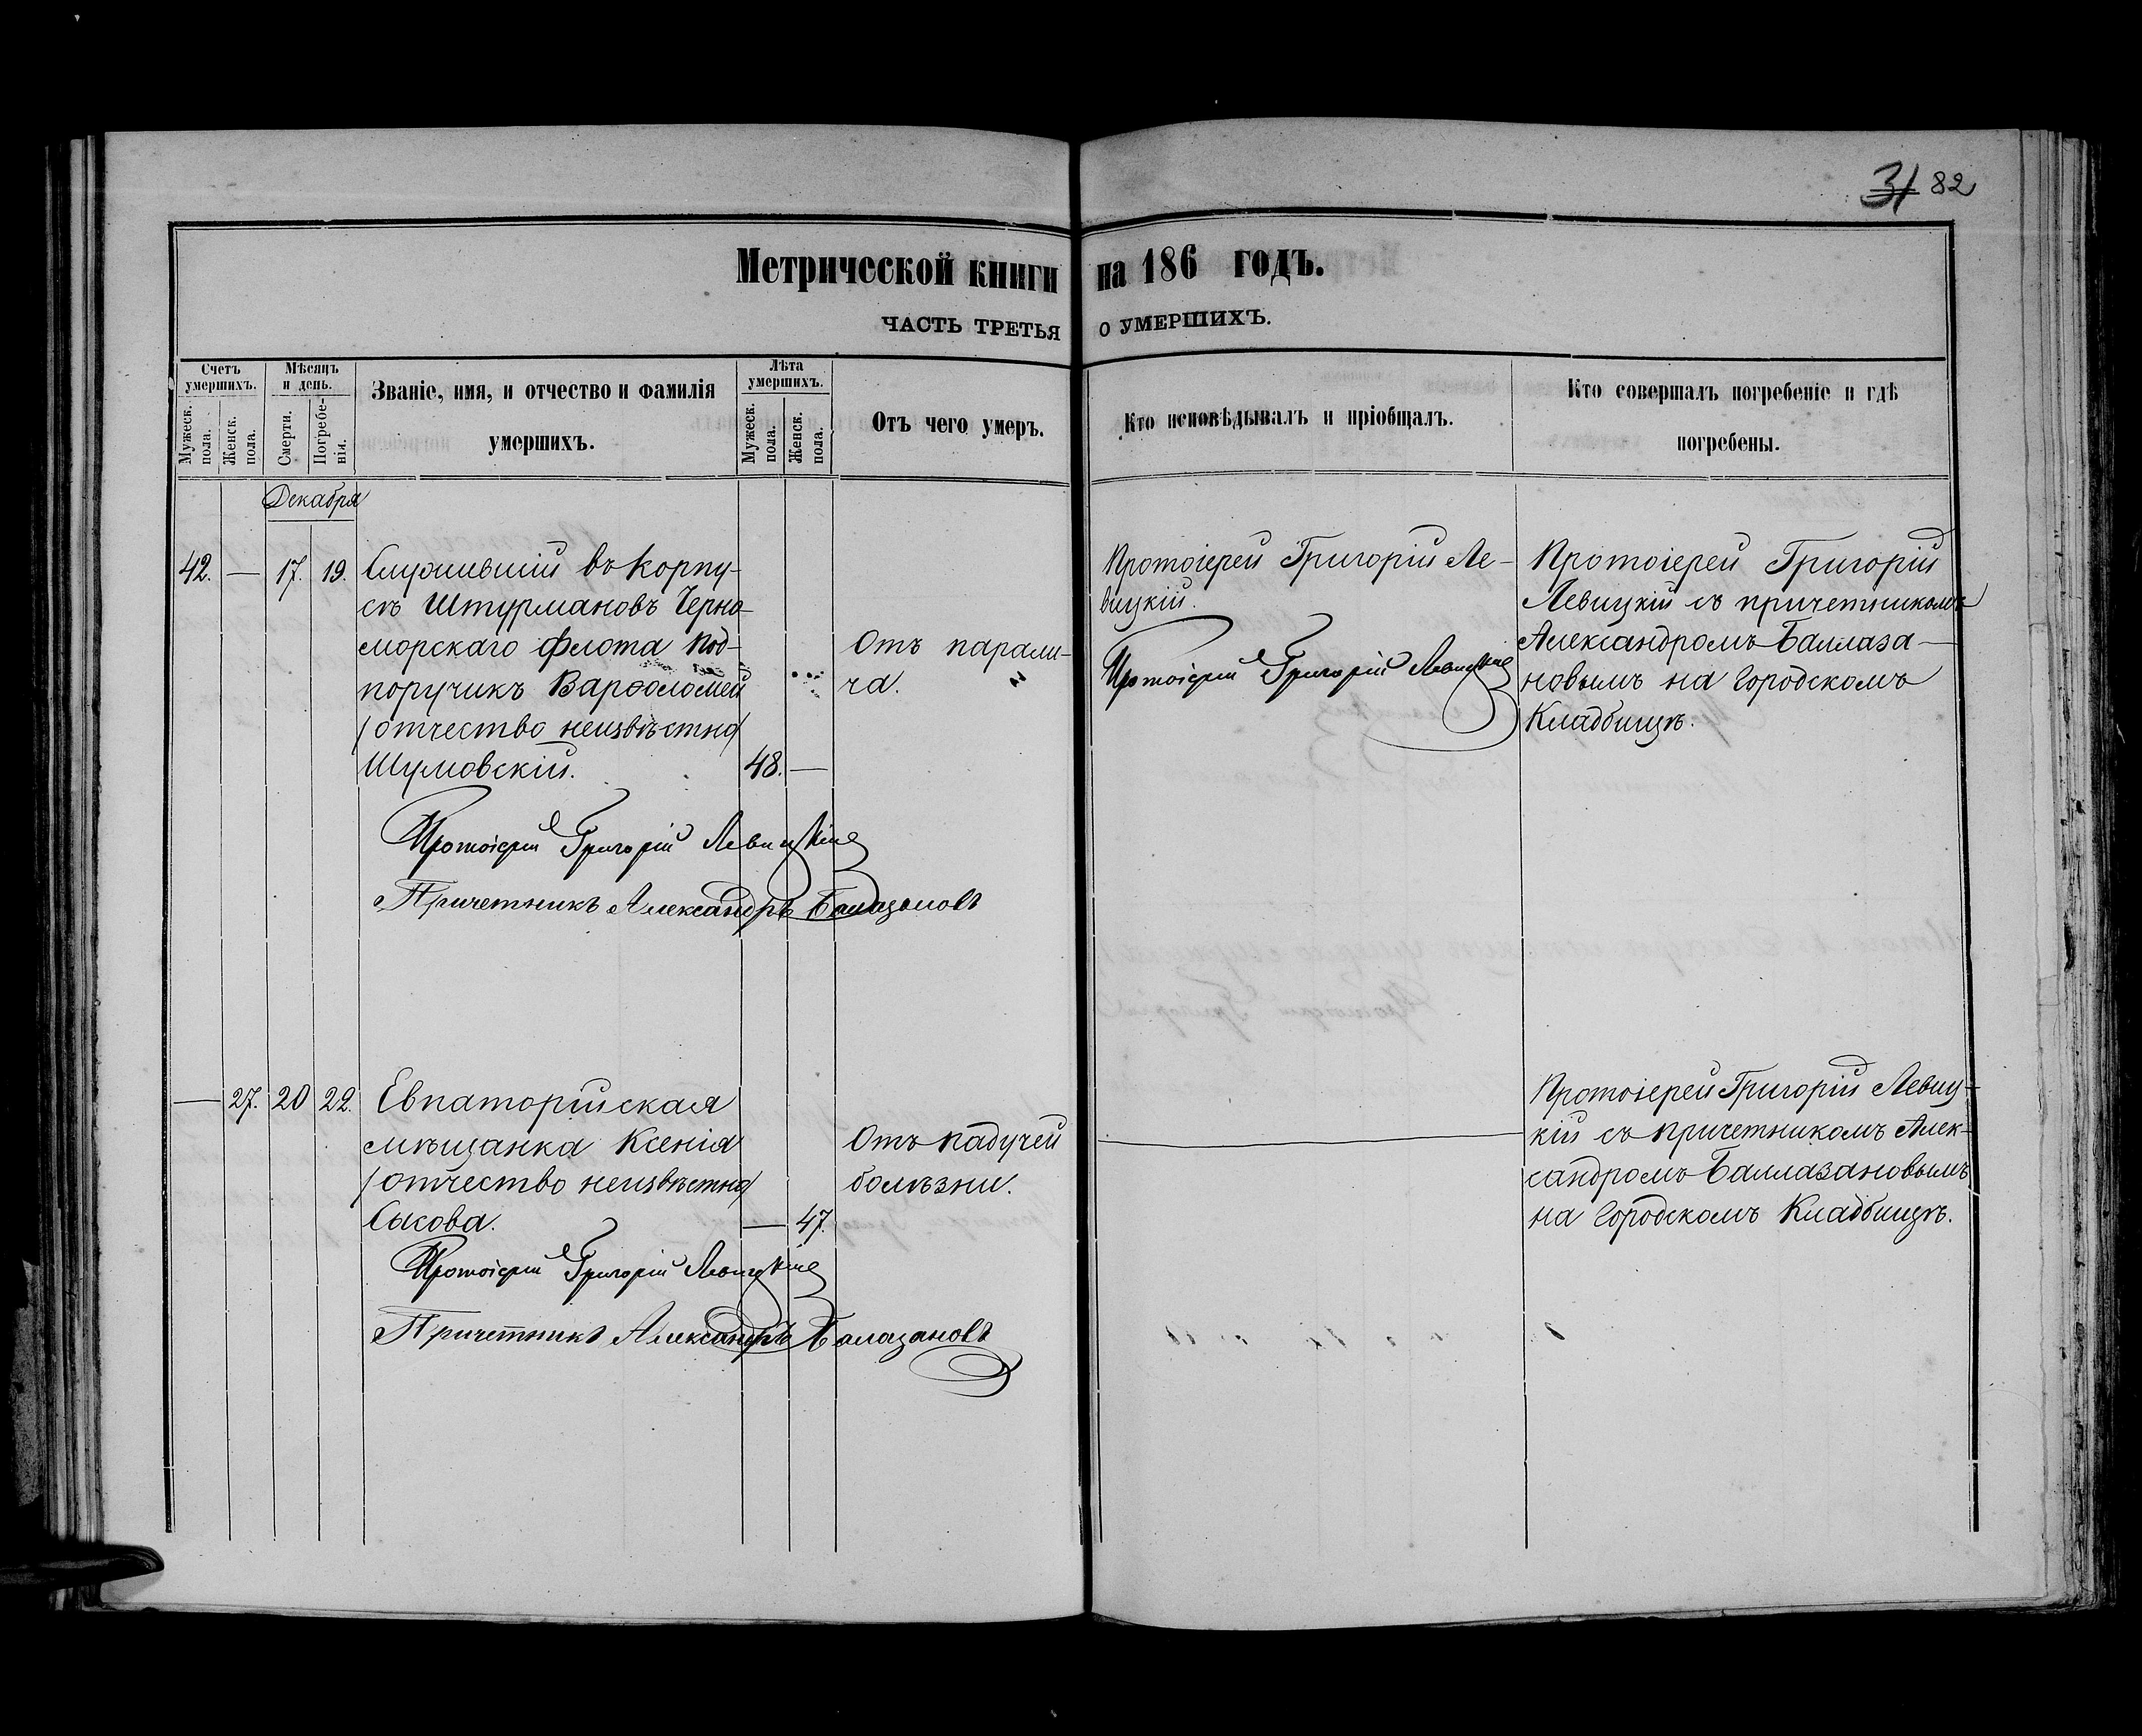 31 82
Метрической книги на 186 годъ.
ЧАСТЬ ТРЕТЬЯ О УМЕРШИХЪ.
Счетъ умершихъ.
Мужеск. пола.
Женск. пола.
Мѣсяцъ и день.
Смерти.
Погребенія.
Званіе, имя, и отчество и фамилія
умершихъ.
Лѣта умершихъ.
Мужеск. пола.
Женск. пола.
Отъ чего умеръ.
Кто исповѣдывалъ и пріобщалъ.
Кто совершалъ погребеніе и гдѣ
погребены.
Декабря
42. — 17. 19. Служившій въ Корпу-
съ Штурмановъ Черно-
морскаго Флота Под-
поручикъ Варѳоломей
/отчество неизвѣстно/
Шумовскій. 48. —
Отъ парали-
ча.
Протоіерей Григорій Ле-
вицкій.
Протоіерей Григорій Левицкій
Протоіерей Григорій
Левицкій съ причетникомъ
Александромъ Баллаза-
новымъ на Городскомъ
Кладбищѣ.
Протоіерей Григорій Левицкій
Причетникъ Александръ Балазановъ
— 27. 20 22. Евпаторійская
мѣщанка Ксенія
/отчество неизвѣстно/
Сыкова. — 47.
Отъ падучей
болѣзни.
Протоіерей Григорій Левиц-
кій съ причетникомъ Алек-
сандромъ Баллазановымъ
на Городскомъ Кладбищѣ.
Протоіерей Григорій Левицкій
Причетникъ Александръ Балазановъ